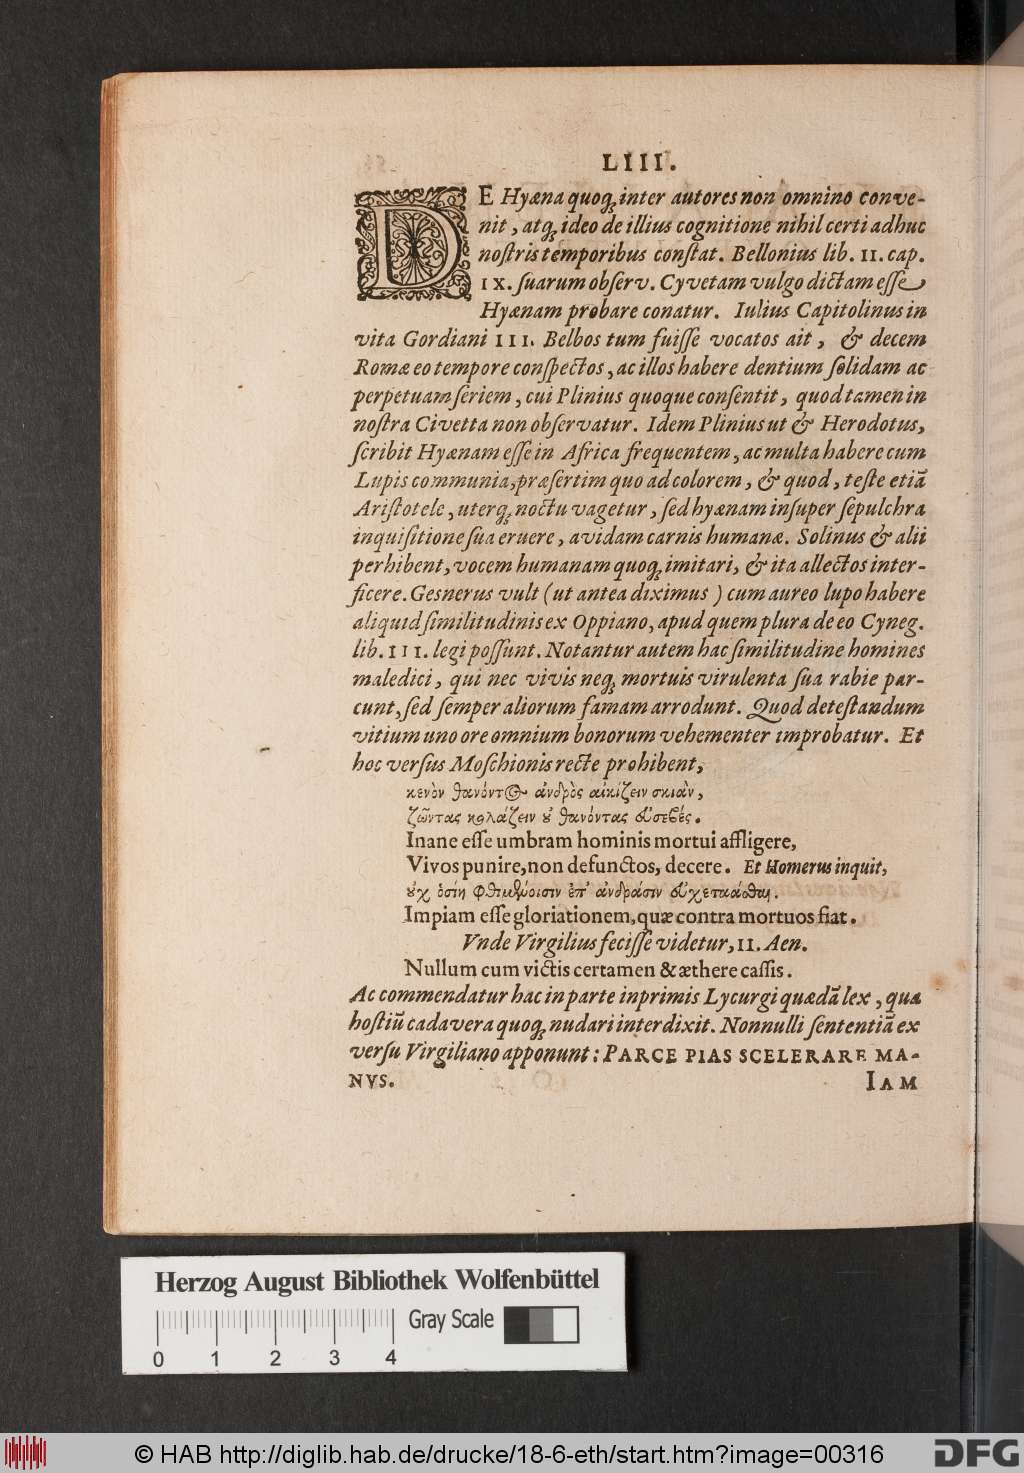 LIII.
DE Hyæna quoqꝫ inter autores non omnino conve-
nit, atqꝫ ideo de illius cognitione nihil certi adhuc
noſtris temporibus conſtat. Bellonius lib. II. cap.
IX. ſuarum obſerv. Cyvetam vulgo dictam eſſe
Hyænam probare conatur. Iulius Capitolinus in
vita Gordiani III. Belbos tum fuiſſe vocatos ait, & decem
Romæ eo tempore conſpectos, ac illos habere dentium ſolidam ac
perpetuam ſeriem, cui Plinius quoque conſentit, quod tamen in
noſtra Civetta non obſervatur. Idem Plinius ut & Herodotus,
ſcribit Hyænam eſſe in Africa frequentem, ac multa habere cum
Lupis communia, præſertim quo ad colorem, & quod, teſte etiã
Ariſtotele, uterqꝫ noctu vagetur, ſed hyænam inſuper ſepulchra
inquiſitione ſua eruere, avidam carnis humanæ. Solinus & alii
perhibent, vocem humanam quoqꝫ imitari, & ita allectos inter-
ficere. Geſnerus vult (ut antea diximus) cum aureo lupo habere
aliquid ſimilitudinis ex Oppiano, apud quem plura de eo Cyneg.
lib. III. legi poſſunt. Notantur autem hac ſimilitudine homines
maledici, qui nec vivis neqꝫ mortuis virulenta ſua rabie par-
cunt, ſed ſemper aliorum famam arrodunt. Quod deteſtandum
vitium uno ore omnium bonorum vehementer improbatur. Et
hoc verſus Moſchionis recte prohibent,
κενὸν θανόντος ἀνδρὸς αἰκίζειν σκιὰν,
ζῶντας κολάζειν ȣ̓ θανόντας εὐσεβές.
Inane eſſe umbram hominis mortui affligere,
Vivos punire, non defunctos, decere. Et Homerus inquit,
ȣ̓χ ὁσίη φθιμένοισιν ἐπ' ἀνδράσιν εὐχετάασθαι.
Impiam eſſe gloriationem, quæ contra mortuos fiat.
Vnde Virgilius feciſſe videtur, II. Aen.
Nullum cum victis certamen & æthere caſſis.
Ac commendatur hac in parte inprimis Lycurgi quædã lex, qua
hoſtiũ cadavera quoqꝫ nudari interdixit. Nonnulli ſententiã ex
verſu Virgiliano apponunt: PARCE PIAS SCELERARE MA-
NVS.
IAM
Herzog August Bibliothek Wolfenbüttel
Gray Scale
0 1 2 3 4
© HAB http://diglib.hab.de/drucke/18-6-eth/start.htm?image=00316
DFG